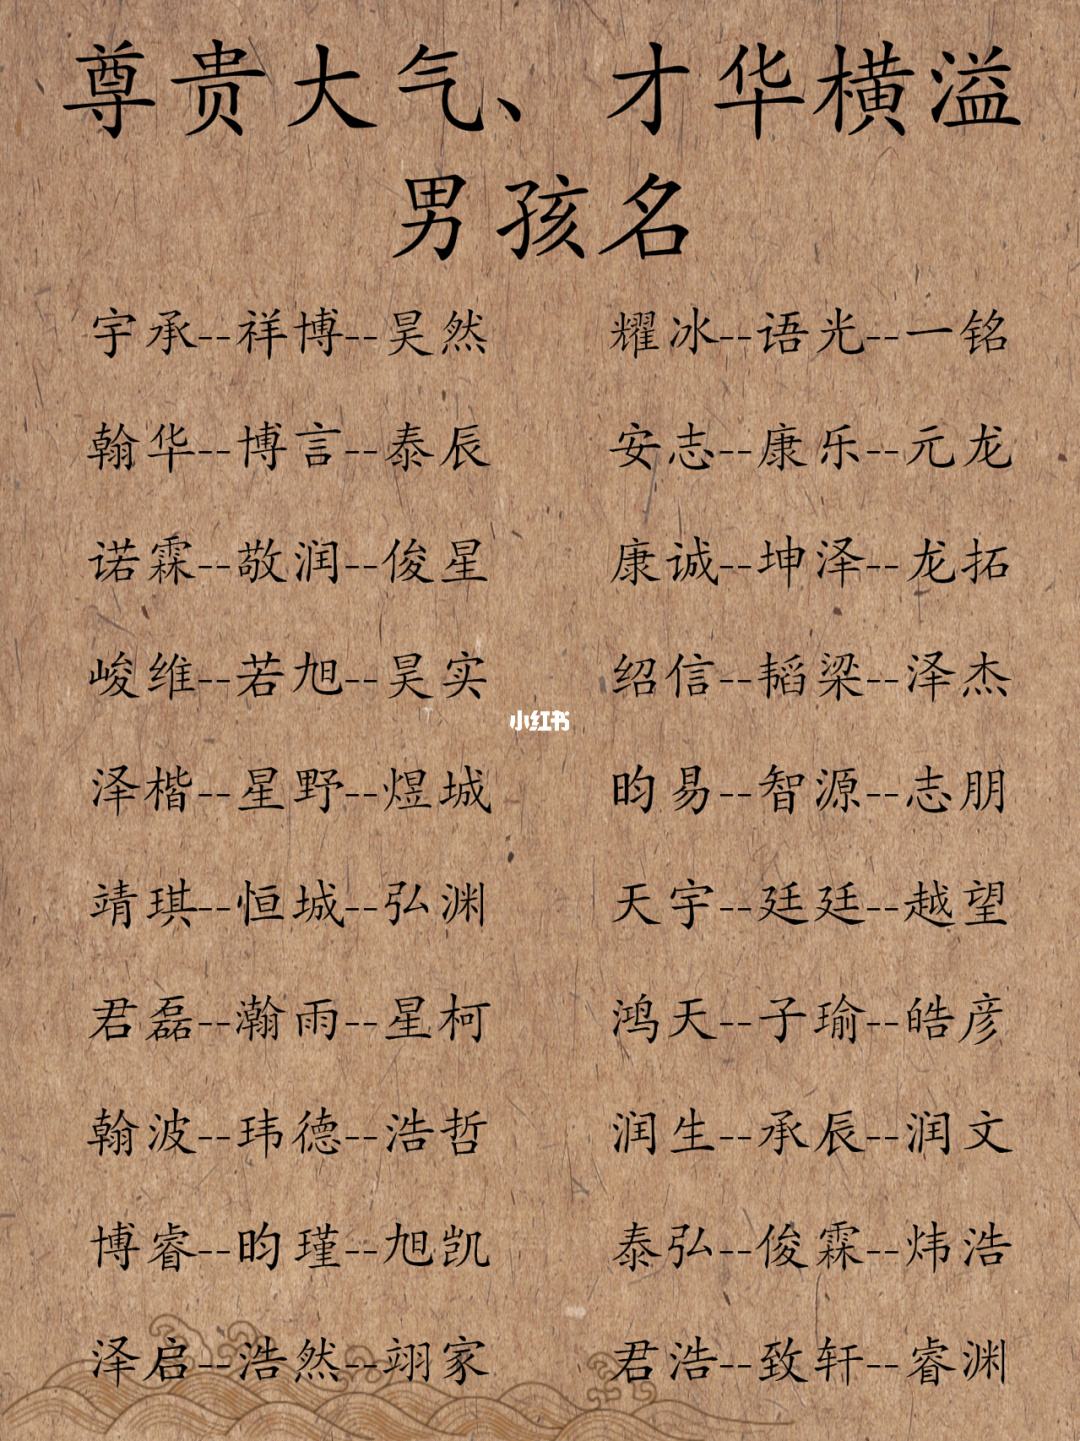 尊贵大气、才华横溢
男孩名
宇承--祥博--昊然 耀冰--语光--一铭
翰华--博言--泰辰 安志--康乐--元龙
诺霖--敬润--俊星 康诚--坤泽--龙拓
峻维--若旭--昊实 绍信--韬梁--泽杰
小红书
泽楷--星野--煜城 昀易--智源--志朋
靖琪--恒城--弘渊 天宇--廷廷--越望
君磊--瀚雨--星柯 鸿天--子瑜--皓彦
翰波--玮德--浩哲 润生--承辰--润文
博睿--昀瑾--旭凯 泰弘--俊霖--炜浩
泽启--浩然--翊家 君浩--致轩--睿渊